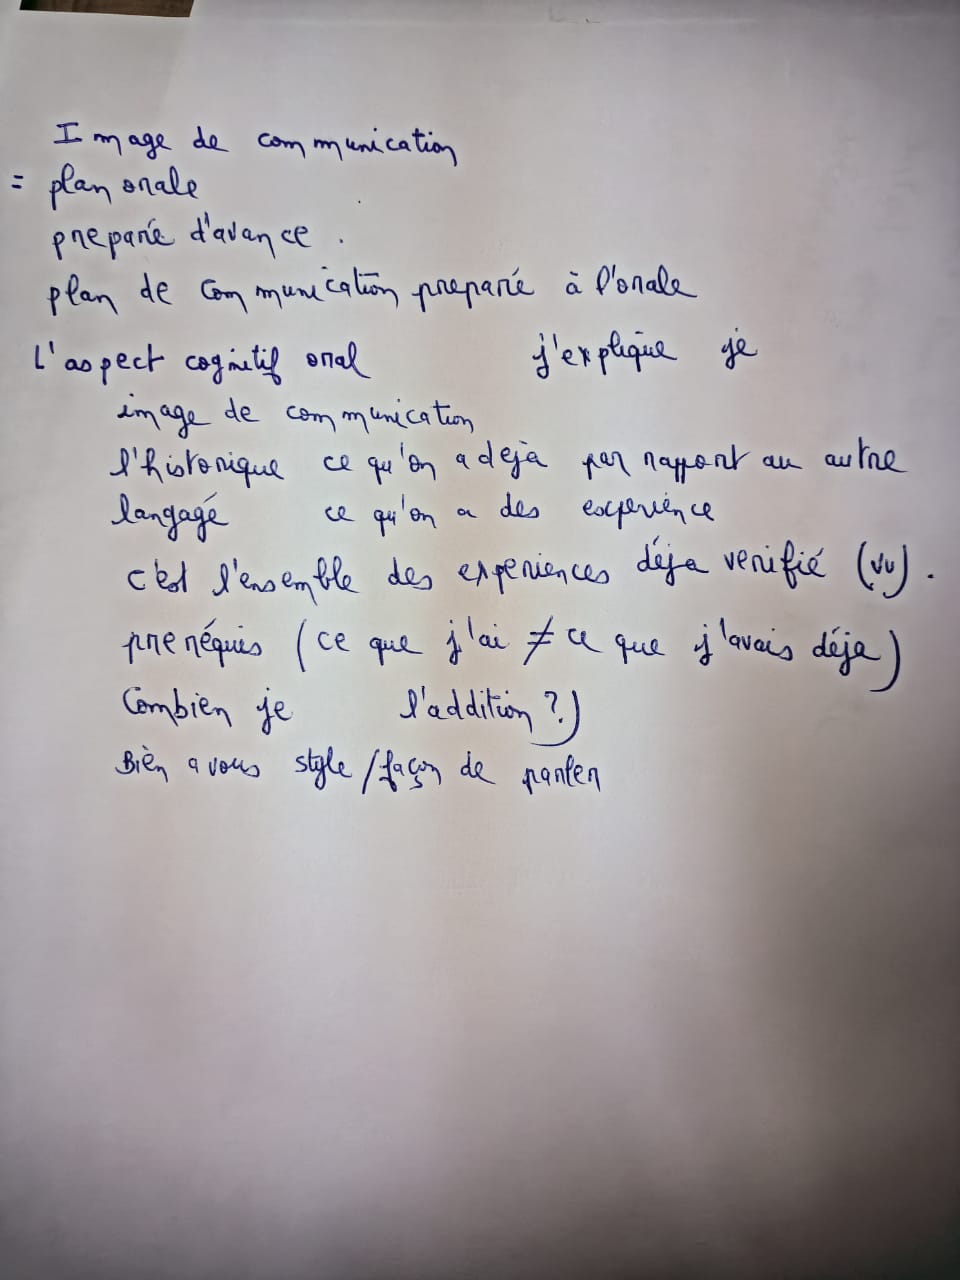 Image de communication
= plan orale
preparé d'avance.
plan de communication preparé à l'orale
L'aspect cognitif oral j'explique je
image de communication
l'historique ce qu'on a dejà par rapport au autre
langagé ce qu'on a des experience
c'est l'ensemble des experiences déja verifié (vu).
preréquis (ce que j'ai ≠ ce que j'avais déja)
Combien je l'addition ?)
Bièn a vous style/façon de parler